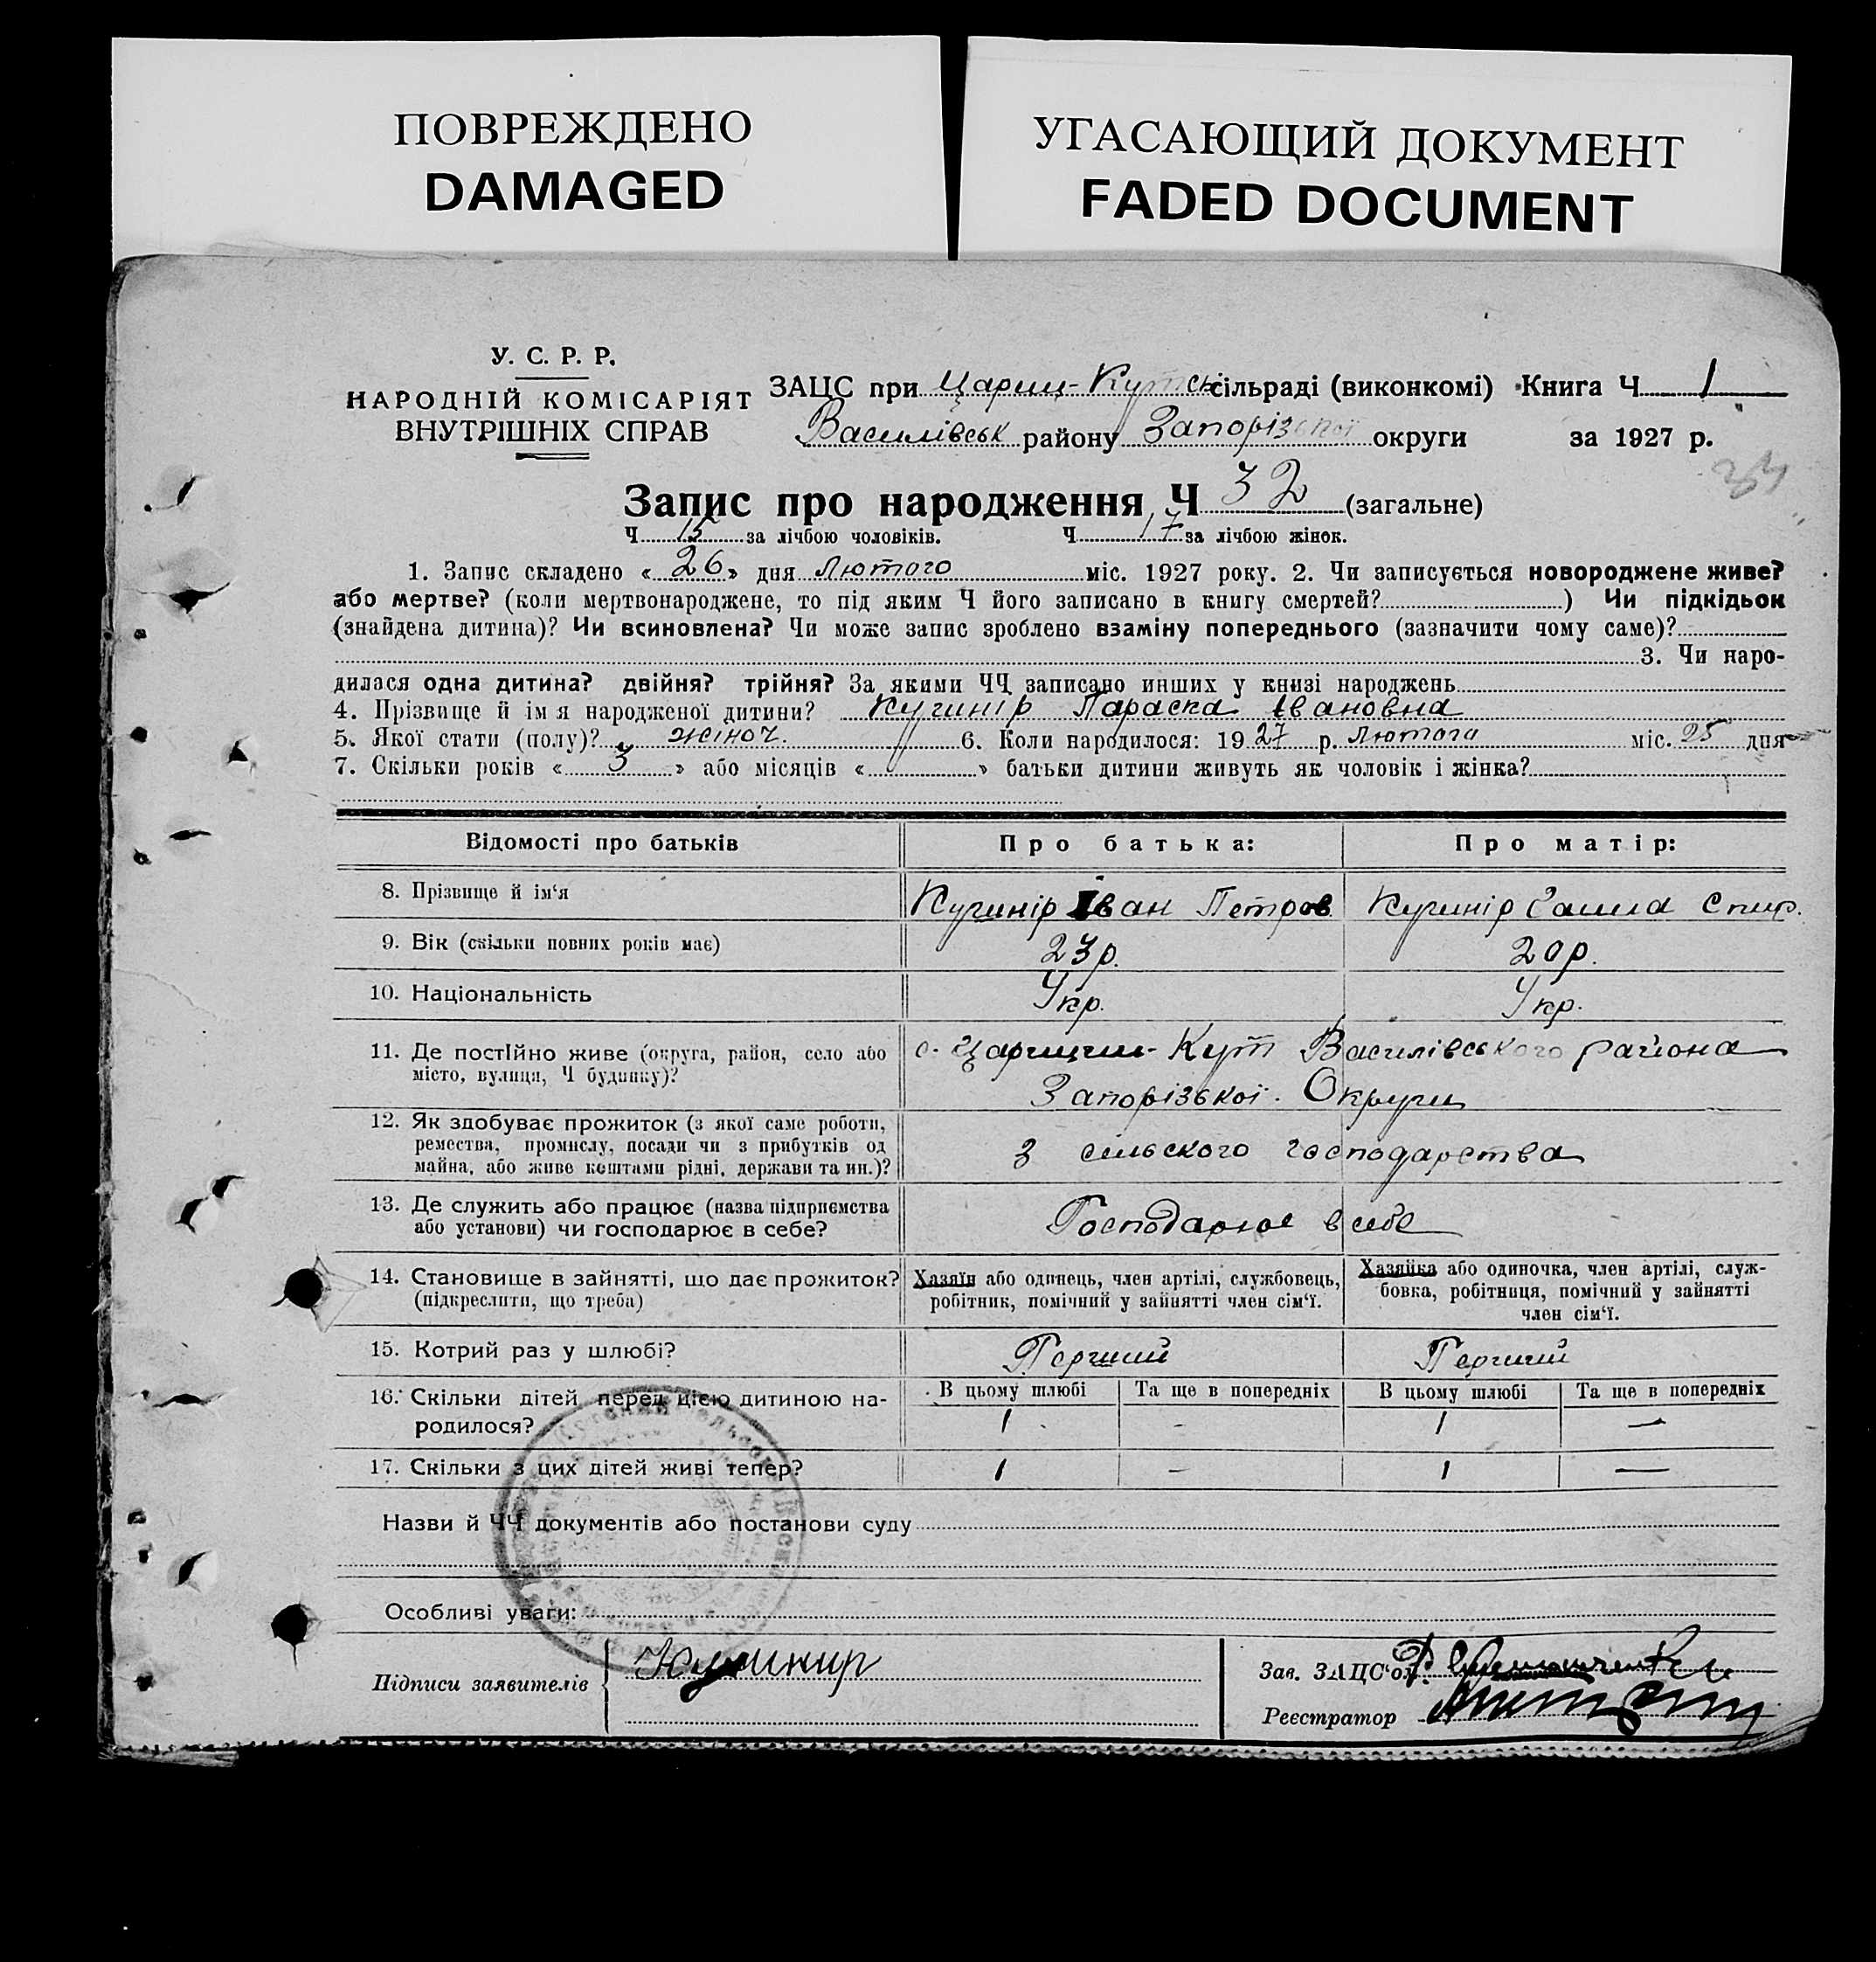 ПОВРЕЖДЕНО
DAMAGED
УГАСАЮЩИЙ ДОКУМЕНТ
FADED DOCUMENT
У. С. Р. Р.
НАРОДНІЙ КОМІСАРІЯТ
ВНУТРІШНІХ СПРАВ
ЗАЦС при Цариц-Кутськ сільраді (виконкомі) Книга Ч 1
Василівськ району Запорізької округи за 1927 р.
34
Запис про народження Ч 32 (загальне)
Ч 15 за лічбою чоловіків. Ч 17 за лічбою жінок.
1. Запис складено « 26 » дня Лютого міс. 1927 року. 2. Чи записується новороджене живе?
або мертве? (коли мертвонароджене, то під яким Ч його записано в книгу смертей? ) Чи підкідьок
(знайдена дитина)? Чи всиновлена? Чи може запис зроблено взаміну попереднього (зазначити чому саме)?
3. Чи наро-
дилася одна дитина? двійня? трійня? За якими ЧЧ записано инших у книзі народжень
4. Прізвище й імя народженої дитини? Кушнір Параска Івановна
5. Якої стати (полу)? жіноч. 6. Коли народилося: 1927 р. Лютого міс. 25 дня
7. Скільки років « 3 » або місяців « » батьки дитини живуть як чоловік і жінка?
Відомості про батьків Про батька: Про матір:
8. Прізвище й ім‘я Кушнір Іван Петров Кушнір Спир.
9. Вік (скільки повних років має) 23 р. 20 р.
10. Національність Укр. Укр.
11. Де постійно живе (округа, район, село або с. Царицин-Кут Василівського района
місто, вулиця, Ч будинку)? Запорізької Округи
12. Як здобуває прожиток (з якої саме роботи,
ремества, промислу, посади чи з прибутків од з сільского господарства
майна, або живе коштами рідні, держави та ин.)?
13. Де служить або працює (назва підприємства Господарює в себе
або установи) чи господарює в себе?
14. Становище в зайнятті, що дає прожиток? Хазяїн або одинець, член артілі, службовець, Хазяйка або одиночка, член артілі, служ-
(підкреслити, що треба) робітник, помічний у зайнятті член сім‘ї. бовка, робітниця, помічний у зайнятті
член сім‘ї.
15. Котрий раз у шлюбі? Перший Перший
16. Скільки дітей перед цією дитиною на- В цьому шлюбі Та ще в попередніх В цьому шлюбі Та ще в попередніх
родилося? 1 - 1 —
17. Скільки з цих дітей живі тепер? 1 - 1 —
Назви й ЧЧ документів або постанови суду
Особливі уваги:
Підписи заявителів Кушнир
Зав. ЗАЦС‘ом
Реєстратор